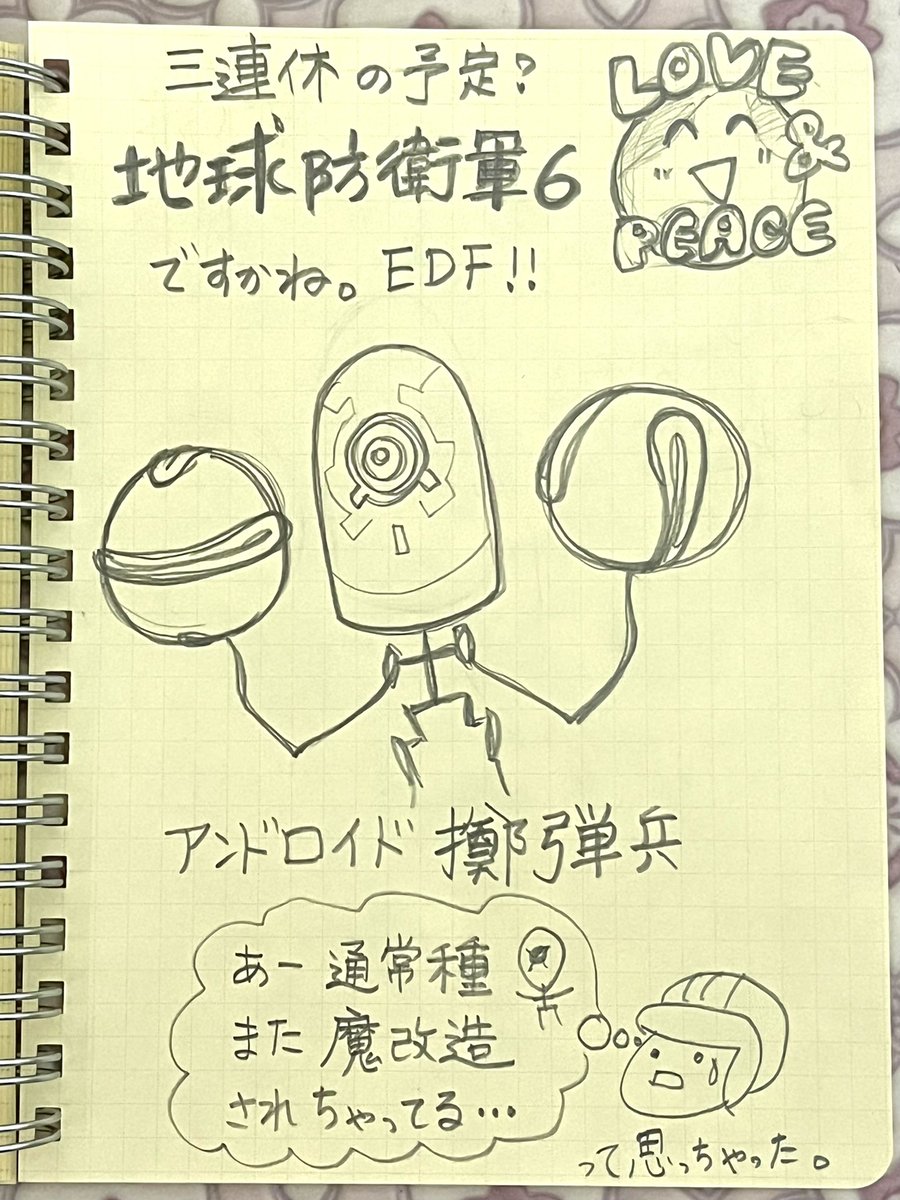 三連休の予定?
地球防衛軍6
ですかね。EDF!!
LOVE
&
PEACE
アンドロイド 擲弾兵
あー 通常種
また 魔改造
されちゃってる…
って思っちゃった。